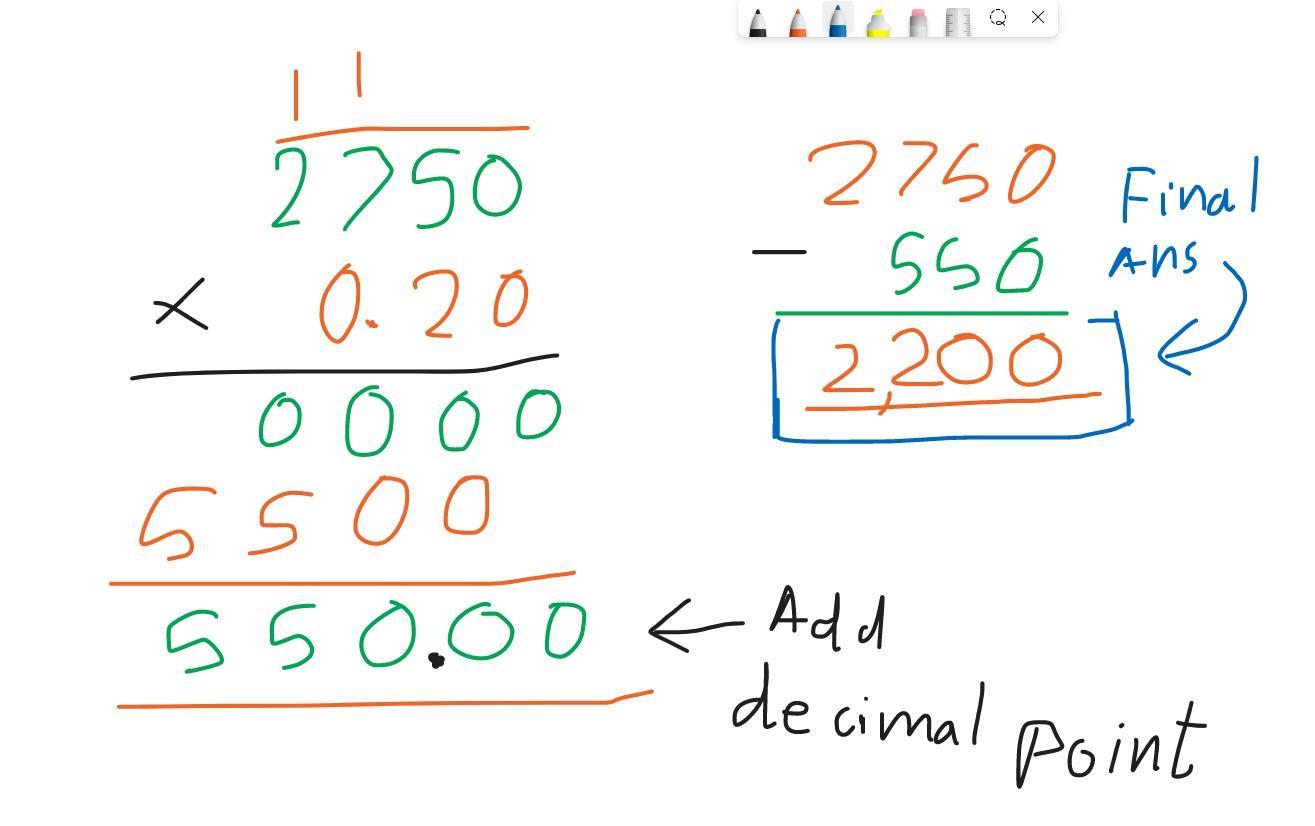 1 1
2750
× 0.20
0000
5500
550.00
2750
- 550
2,200
Final
Ans
Add
decimal
point